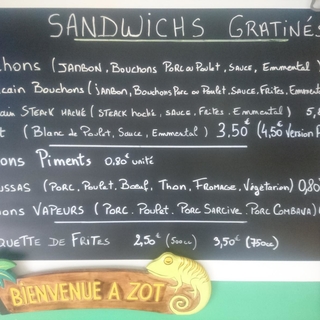 SANDWICHS GRATINÉS
chons (JAMBON, Bouchons Porc ou Poulet, SAUCE, Emmental)
cain Bouchons (JAMBON, Bouchons Porc ou Poulet, SAUCE, Frites, Emmental
ain STEACK HACHÉ (STEACK haché, SAUCE, Frites, Emmental) 5,
t (Blanc de Poulet, Sauce, Emmental) 3,50€ (4,50€ Version
ons Piments 0.80€ unité
USSAS (PORC, Poulet, Bœuf, Thon, FROMAGE, Végétarien) 0,80
ons VAPEURS (PORC, POULET, PORC SARCIVE, PORC COMBAVA)
QUETTE DE FRITES 2,50€ (500cc) 3,50€ (750cc)
BIENVENUE A ZOT